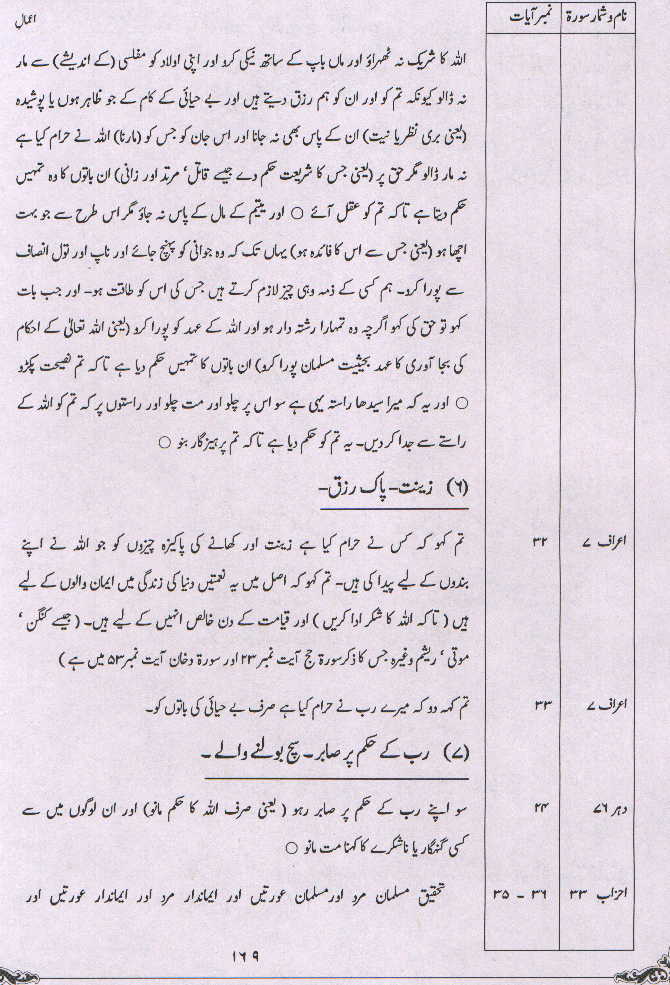 نام و شمار سورۃ نمبر آیات
اعمال
اللہ کا شریک نہ ٹھہراؤ اور ماں باپ کے ساتھ نیکی کرو اور اپنی اولاد کو مفلسی (کے اندیشے) سے مار
نہ ڈالو کیونکہ تم کو اور ان کو ہم رزق دیتے ہیں اور بے حیائی کے کام کے جو ظاہر ہوں یا پوشیدہ
(یعنی بری نظر یا نیت) ان کے پاس بھی نہ جانا اور اس جان کو جس کو (مارنا) اللہ نے حرام کیا ہے
نہ مار ڈالو مگر حق پر (یعنی جس کا شریعت حکم دے جیسے قاتل‘ مرتد اور زانی) ان باتوں کا وہ تمہیں
حکم دیتا ہے تا کہ تم کو عقل آئے ○ اور یتیم کے مال کے پاس نہ جاؤ مگر اس طرح سے جو بہت
اچھا ہو (یعنی جس سے اس کا فائدہ ہو) یہاں تک کہ وہ جوانی کو پہنچ جائے اور ناپ اور تول انصاف
سے پورا کرو۔ ہم کسی کے ذمہ وہی چیز لازم کرتے ہیں جس کی اس کو طاقت ہو۔ اور جب بات
کہو تو حق کی کہو اگرچہ وہ تمہارا رشتہ دار ہو اور اللہ کے عہد کو پورا کرو (یعنی اللہ تعالیٰ کے احکام
کی بجا آوری کا عہد بحیثیت مسلمان پورا کرو) ان باتوں کا تمہیں حکم دیا ہے تا کہ تم نصیحت پکڑو
○ اور یہ کہ میرا سیدھا راستہ یہی ہے سو اس پر چلو اور مت چلو اور راستوں پر کہ تم کو اللہ کے
راستے سے جدا کر دیں۔ یہ تم کو حکم دیا ہے تا کہ تم پرہیزگار بنو ○
(۶) زینت- پاک رزق-
اعراف ۷ ۳۲ تم کہو کہ کس نے حرام کیا ہے زینت اور کھانے کی پاکیزہ چیزوں کو جو اللہ نے اپنے
بندوں کے لیے پیدا کی ہیں- تم کہو کہ اصل میں یہ نعمتیں دنیا کی زندگی میں ایمان والوں کے لیے
ہیں ( تا کہ اللہ کا شکر ادا کریں ) اور قیامت کے دن خالص انہیں کے لیے ہیں۔ ( جیسے کنگن ‘
موتی ‘ ریشم وغیرہ جس کا ذکر سورۃ حج آیت نمبر ۲۳ اور سورۃ دخان آیت نمبر ۵۳ میں ہے )
اعراف ۷ ۳۳ تم کہہ دو کہ میرے رب نے حرام کیا ہے صرف بے حیائی کی باتوں کو۔
(۷) رب کے حکم پر صابر۔ سچ بولنے والے ۔
دہر ۷۶ ۲۴ سو اپنے رب کے حکم پر صابر رہو ( یعنی صرف اللہ کا حکم مانو) اور ان لوگوں میں سے
کسی گنہگار یا ناشکرے کا کہنا مت مانو ○
احزاب ۳۳ ۳۶ - ۳۵ تحقیق مسلمان مرد اور مسلمان عورتیں اور ایماندار مرد اور ایماندار عورتیں اور
۱۶۹